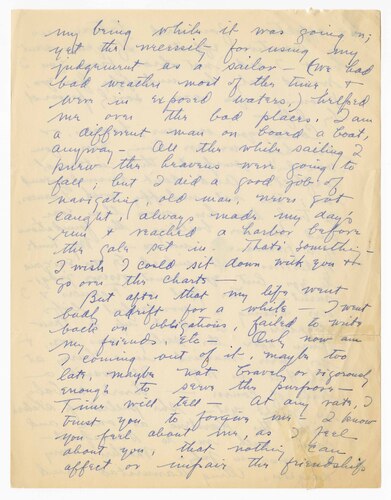 my being while it was going on;
yet the necessity for using my
judgement as a sailor — (we had
bad weather most of the time, &
were in exposed waters,) helped
me over the bad places. I am
a different man on board a boat,
anyway — All the while sailing I
knew the heavens were going to
fall; but I did a good job of
navigating, old man, never got
caught, always made my day's
run & reached a harbor before
the gale set in. That's something —
I wish I could sit down with you &
go over the charts —
But after that my life went
badly adrift for a while — I went
back on obligations, failed to write
my friends, etc — Only now am
I coming out of it, maybe too
late, maybe not bravely or vigorously
enough to serve the purpose —
Time will tell — At any rate, I
trust you to forgive me — I know
you feel about me, as I feel
about you, that nothing can
affect or impair the friendship